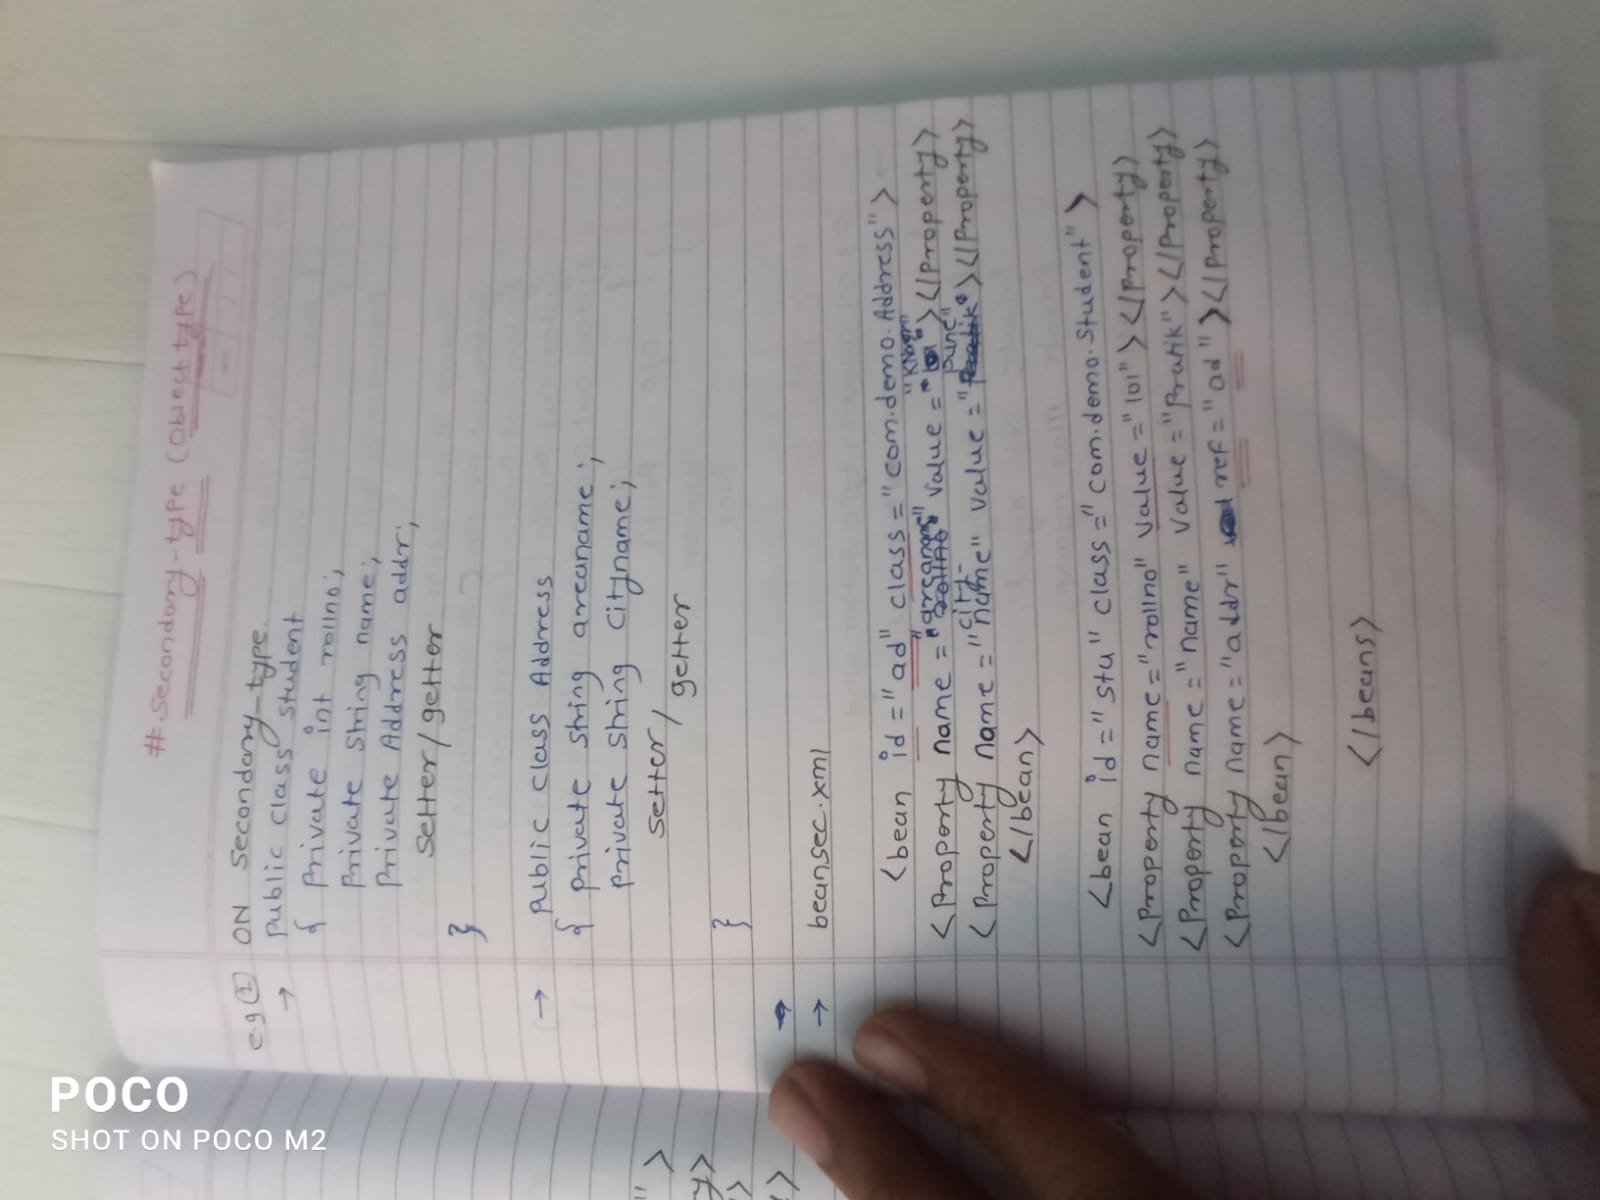 # Secondary-type (Object type)
e.g ① ON Secondary-type.
→ public class Student
{ private int rollno;
private String name;
private Address addr;
Setter/getter
}
→ public class Address
{ private String areaname;
private String cityname;
Setter/
getter
}
→ beansec.xml
<bean id="ad" class="com.demo.Address">
<Property name="areaname" value=" "></Property>
<Property name="cityname" value="pune"></Property>
</bean>
<bean id="stu" class="com.demo.Student">
<Property name="rollno" value="101"></Property>
<Property name="name" value="Pratik"></Property>
<Property name="addr" ref="ad"></Property>
</bean>
</beans>
POCO
SHOT ON POCO M2